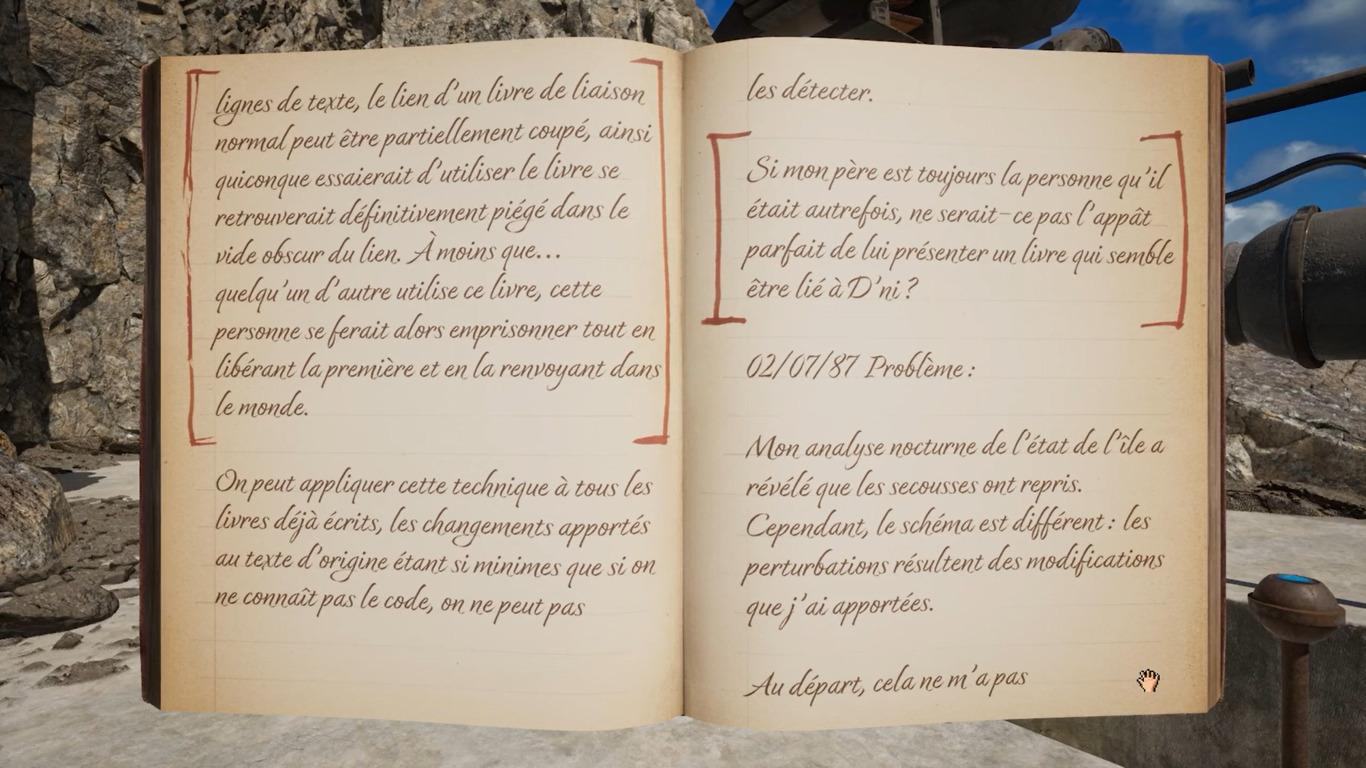 lignes de texte, le lien d'un livre de liaison
normal peut être partiellement coupé, ainsi
quiconque essaierait d'utiliser le livre se
retrouverait définitivement piégé dans le
vide obscur du lien. À moins que...
quelqu'un d'autre utilise ce livre, cette
personne se ferait alors emprisonner tout en
libérant la première et en la renvoyant dans
le monde.
On peut appliquer cette technique à tous les
livres déjà écrits, les changements apportés
au texte d'origine étant si minimes que si on
ne connaît pas le code, on ne peut pas
les détecter.
Si mon père est toujours la personne qu'il
était autrefois, ne serait-ce pas l'appât
parfait de lui présenter un livre qui semble
être lié à D'ni ?
02/07/87 Problème :
Mon analyse nocturne de l'état de l'île a
révélé que les secousses ont repris.
Cependant, le schéma est différent : les
perturbations résultent des modifications
que j'ai apportées.
Au départ, cela ne m'a pas